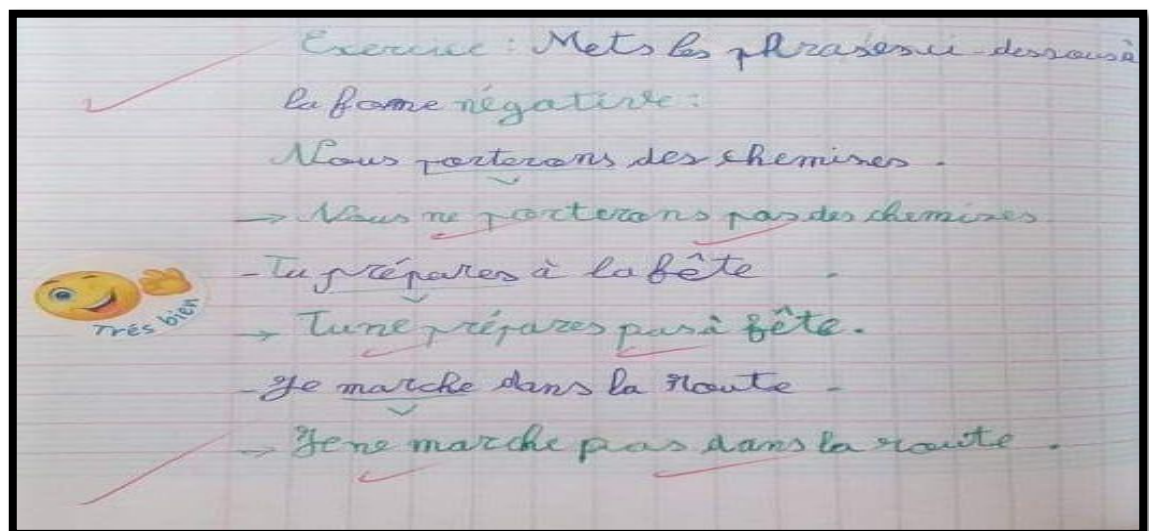 Exercice : Mets les phrases ci-dessous à
la forme négative :
Nous porterons des chemises .
→ Nous ne porterons pas des chemises
- Tu prépares à la fête .
Très bien
→ Tu ne prépares pas à fête .
- Je marche dans la route -
→ Je ne marche pas dans la route .